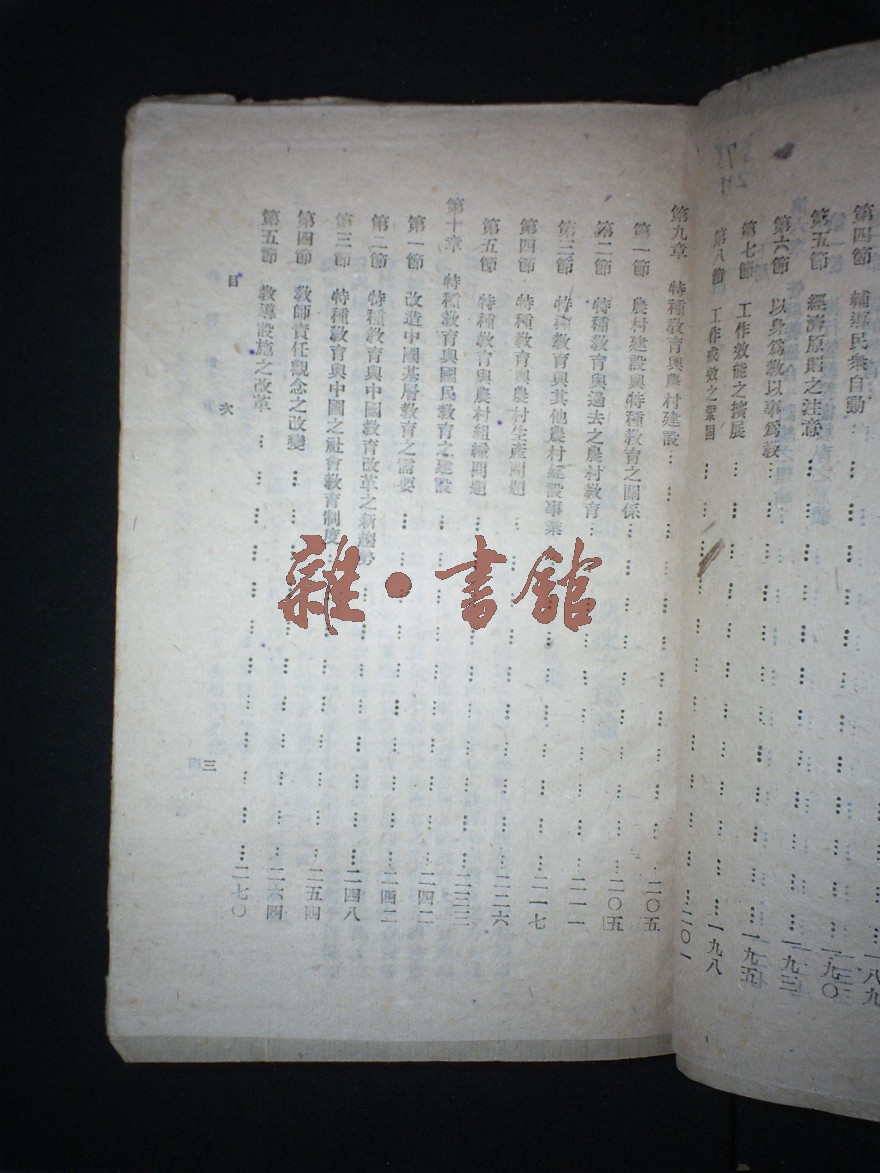 一八九
第四節 輔導民衆自動…………一九〇
第五節 經濟原則之注意…………一九三
第六節 以身爲敎以事爲敎…………一九五
第七節 工作效能之擴展…………一九八
第八節 工作成效之鞏固…………二〇一
第九章 特種敎育與農村建設…………二〇五
第一節 農村建設與特種敎育之關係…………二〇五
第二節 特種敎育與過去之農村敎育…………二一一
第三節 特種敎育與其他農村建設事業…………二一七
第四節 特種敎育與農村生產問題…………二二六
第五節 特種敎育與農村組織問題…………二三三
第十章 特種敎育與國民敎育之建設…………二四二
第一節 改造中國基層敎育之需要…………二四二
第二節 特種敎育與中國敎育改革之新趨勢…………二四八
第三節 特種敎育與中國之社會敎育制度…………二五四
第四節 敎師責任觀念之改變…………二六四
第五節 敎導設施之改革…………二七〇
目次
三
雜·書館